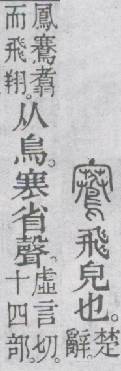 鶱飛皃也。楚辭。
鳳鶱翥而飛翔。从鳥。寒省聲。虛言切。十四部。